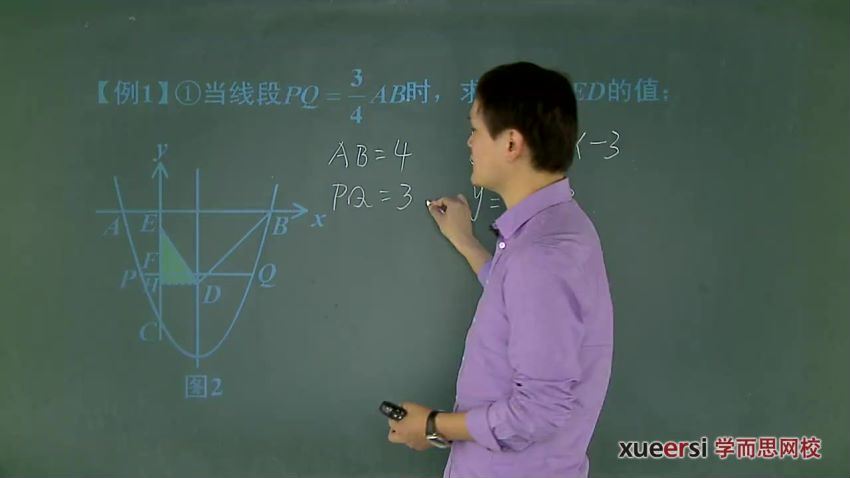 【例1】①当线段PQ = 3/4 AB时，求 ED的值；
AB=4 -3
PQ=3 y=
y
A E B x
F
P H D Q
C
图2
xueersi 学而思网校